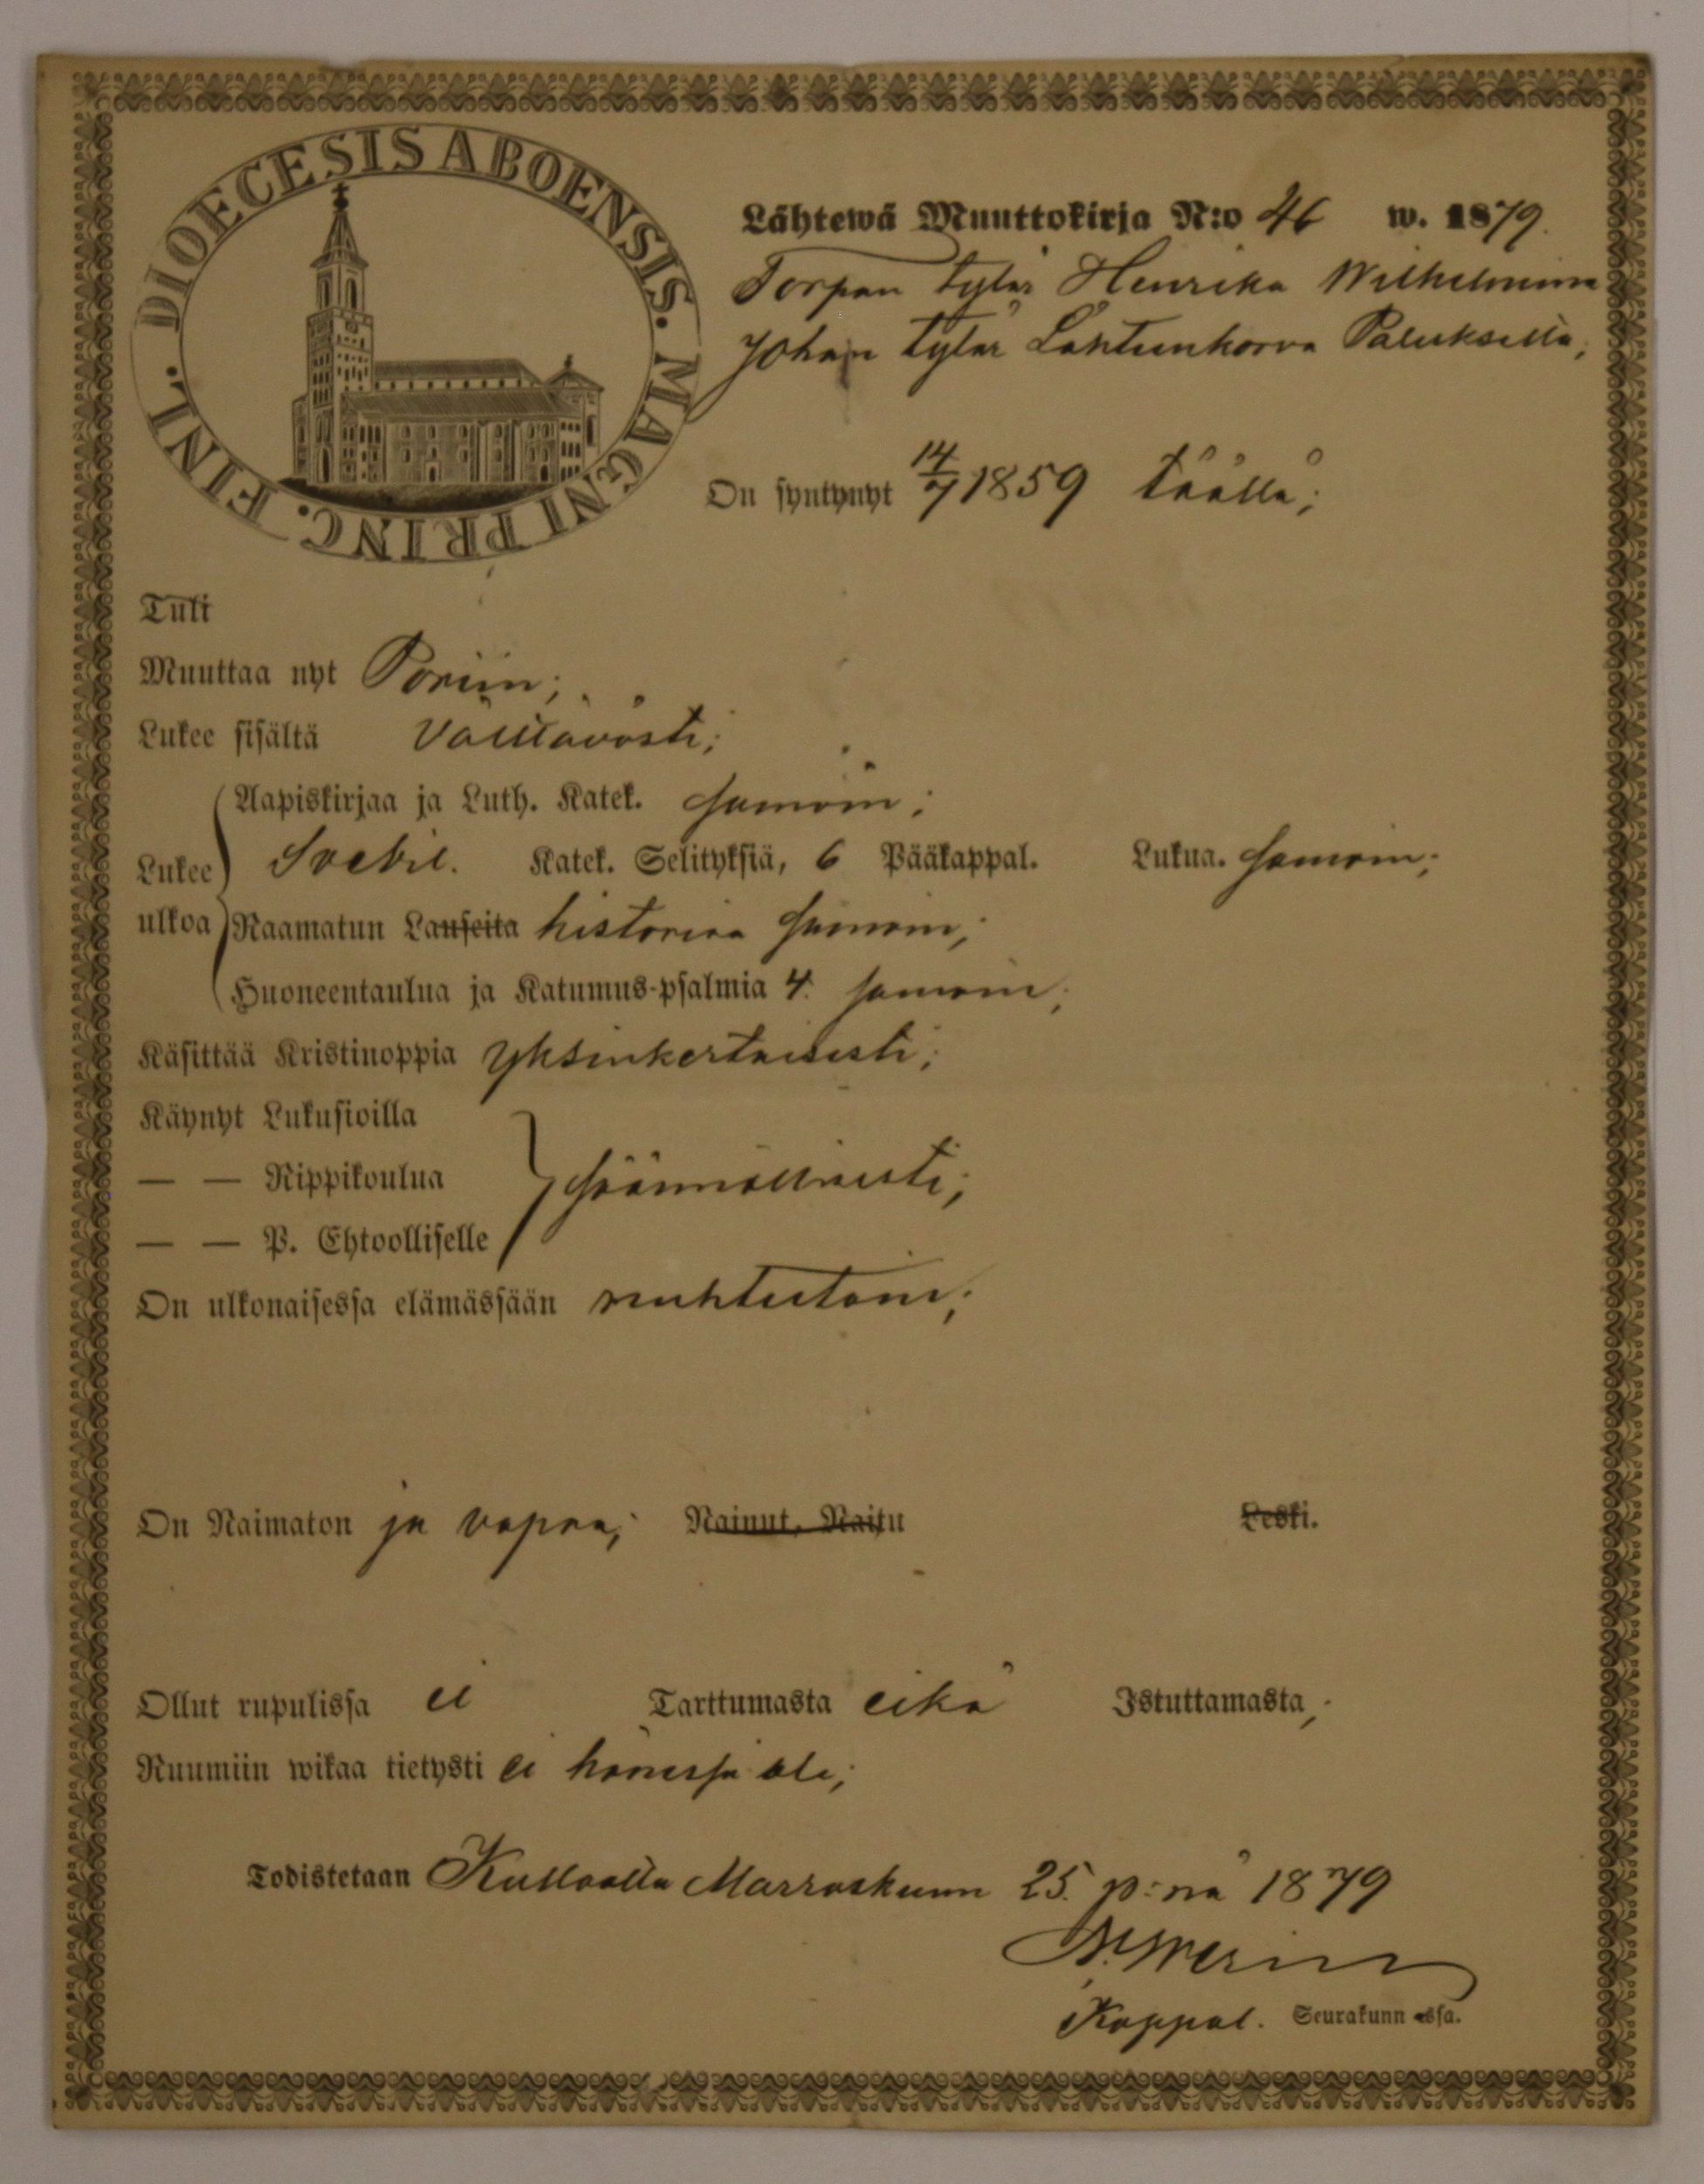 DIOECESIS ABOENSIS. MAGNI PRINC. FINL.
Lähtewä Muuttokirja N:o 46 w. 1879.
Torpan tytär Henrika Wilhelmiina
Johan tytär Lähteenkorva Paluksella;
On syntynyt 14/7 1859 täällä;
Tuli
Muuttaa nyt Poriin;
Lukee sisältä Välttävästi;
Aapiskirjaa ja Luth. Katek. samoin;
Lukee Svebil. Katek. Selityksiä, 6 Pääkappal. Lukua. samoin;
ulkoa Raamatun Lauseita historiaa samoin;
Huoneentaulua ja Katumus-psalmia 4. samoin;
Käsittää Kristinoppia yksinkertaisesti;
Käynyt Lukusioilla
— — Rippikoulua säännöllisesti;
— — P. Ehtoolliselle
On ulkonaisessa elämässään nuhteetoin;
On Naimaton ja vapaa; Nainut, Naitu Leski.
Ollut rupulissa ei Tarttumasta eikä Istuttamasta;
Ruumiin wikaa tietysti ei hänessä ole;
Todistetaan Kullaalla Marraskuun 25. p:nä 1879
Kappal. Seurakunnassa.